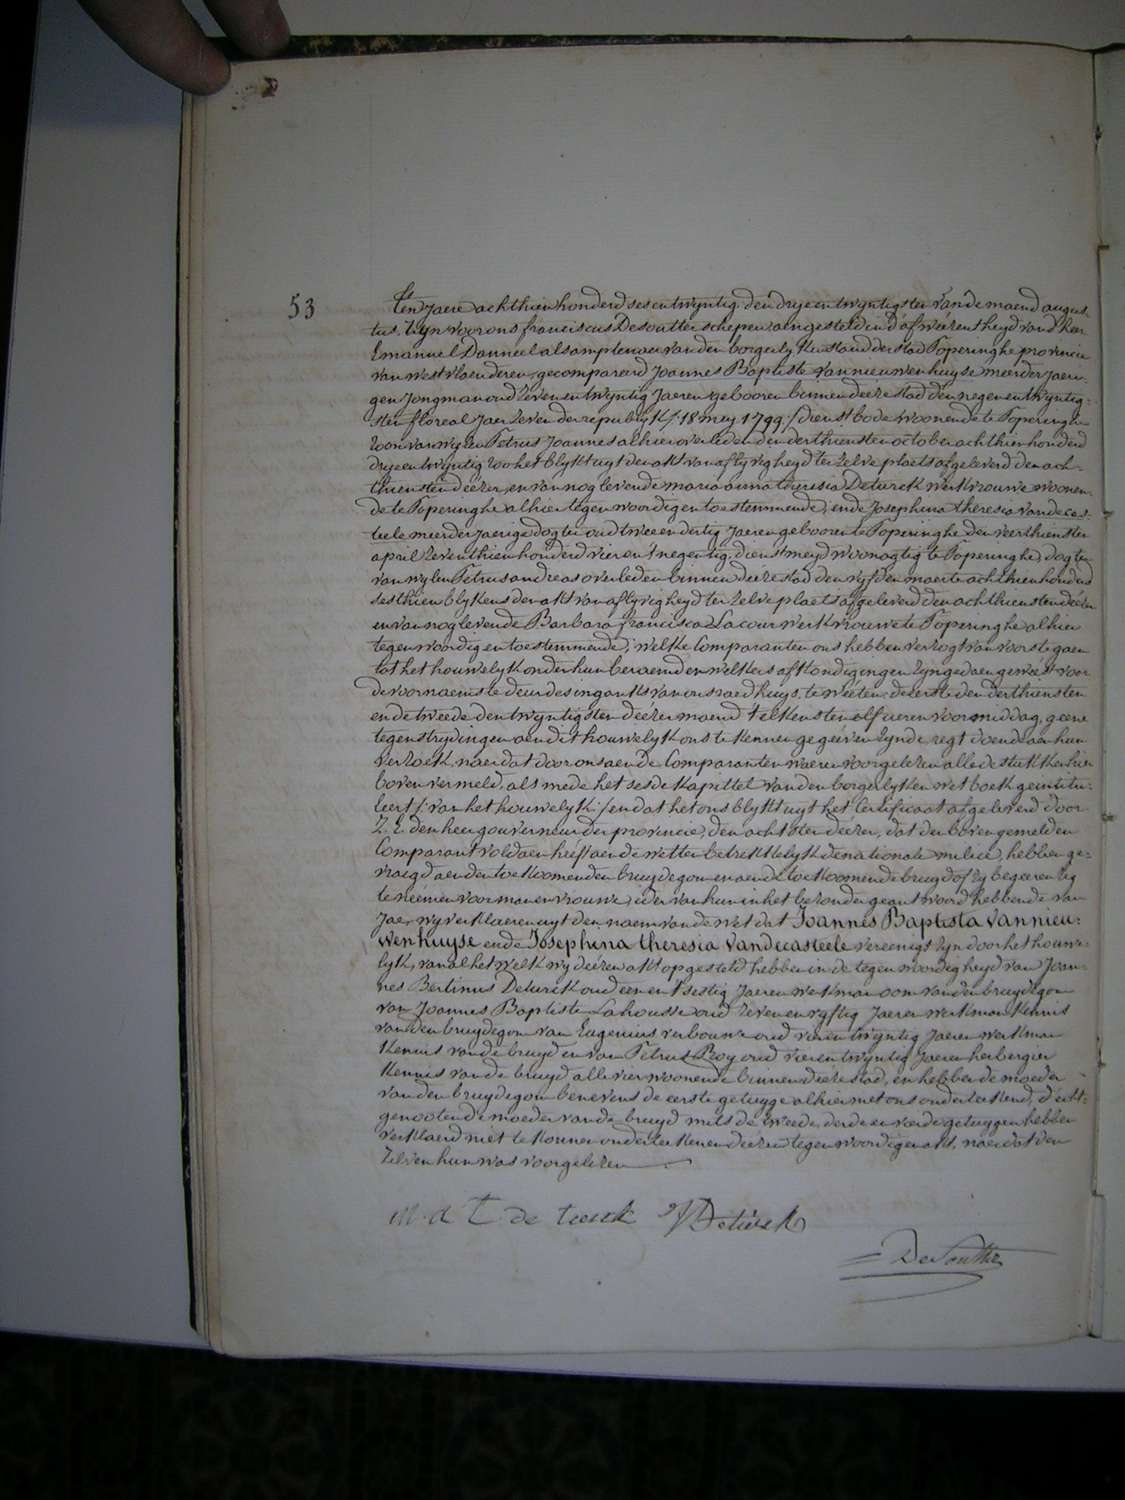 53
Ten Jaere achthien honderd sesentwyntig, den drye en twyntigsten van de maend augus-
tus. Zyn voor ons franciscus Desoutter schepen aengesteld in d'afwéézentheyd van d'heer
Emanuel Danneel als amptenaer van den borgerlyken stand der stad Poperinghe provincie
van westvlaenderen, gecompareerd Joannes Baptiste Vannieuwenhuyse meerderjaeri-
gen Jongman oud zeven en twyntig Jaeren gebooren binnen deeze stad den negen en twyntig-
sten floreal Jaer zeven der republyk /: 18 mey 1799 :/ dienstbode woonende te Poperinghe
zoon van wylen Petrus Joannes alhier overleden den derthiensten october achthien honderd
drye en twyntig zoo het blykt uyt den akt van aflyvigheyd ter zelve plaets afgeleverd den ach-
thiensten déézer, en van nog levende maria anna theresia Deturck werkvrouwe woonen-
de te Poperinghe alhier tegenwoordig en toestemmende, ende Josephina theresia vandecas-
teele meerderjaerige dogter oud twee en dertig Jaeren gebooren te Poperinghe den veerthiensten
april zeventhien honderd vier en t'negentig, dienstmeyd woonagtig te Poperinghe, dogter
van wylen Petrus andreas overleden binnen dééze stad den vyfden maerte achthien honderd
sesthien blykens den akt van aflyvigheyd ter zelve plaets afgeleverd den achthiensten déézer
en van nog levende Barbara francisca Lacour werkvrouwe te Poperinghe alhier
tegenwoordig en toestemmende; welke Comparanten ons hebben verzogt van voors te gaen
tot het houwelyk onder hun beraemd en welkers afkondigingen zyn gedaen geweest voor
de voornaemste deur des ingangs van ons raedhuys, te wéeten: de eerste den derthiensten
en de tweede den twyntigsten déézer maend telkens ten elf ueren voormiddag, geene
tegenstrydingen aen dit houwelyk ons te kennen gegéeven zynde, regt doende aen hun
verzoek, naer dat door ons aen de Comparanten waeren voorgelezen alle de stukken hier
boven vermeld, als mede het sesde kapittel van den borgerlyken wetboek geintitu-
leert /: van het houwelyk :/ en dat het ons blykt uyt het Certificaet afgeleverd door
Z. E. den heer gouverneur der provincie, den achtsten déézer, dat den boven gemelden
Comparant voldaen heeft aen de wetten betrekkelyk de nationale milicie, hebben ge-
vraegd aen den toekoomenden bruydegom en aen de toekoomende bruyd of zy begeeren zig
te néémen voor man en vrouwe, ider van hun in het bezonder geantwoord hebbende van
Jae, wy verklaeren uyt den naem van de wet dat Joannes Baptista Vannieu-
wenhuyse ende Josephina theresia Vandecasteele vereenigt zyn door het houwe-
lyk, van al het welk wy déézen akt opgesteld hebben in de tegenwoordigheyd van Joan-
nes Bertinus Deturck oud een en t'sestig Jaeren werkman oom van den bruydegom
van Joannes Baptiste Lahousse oud zeven en vyftig Jaeren werkman kennis
van den bruydegom van Eugenius verbouw oud vier en twyntig Jaeren werkman
kennis van de bruyd en van Petrus Roy oud vier en twyntig Jaeren herbergier
kennis van de bruyd alle vier woonende binnen dééze stad, en hebben de moeder
van den bruydegom benevens de eerste getuyge alhier met ons onderteekend, d'echt-
genooten de moeder van de bruyd mits de tweede, derde en vierde getuygen hebben
verklaerd niet te konnen onderteekenen déézen tegenwoordigen akt, naer dat den
zelven hun was voorgelezen
M. A T. de turck J B Deturck
DeSoutter